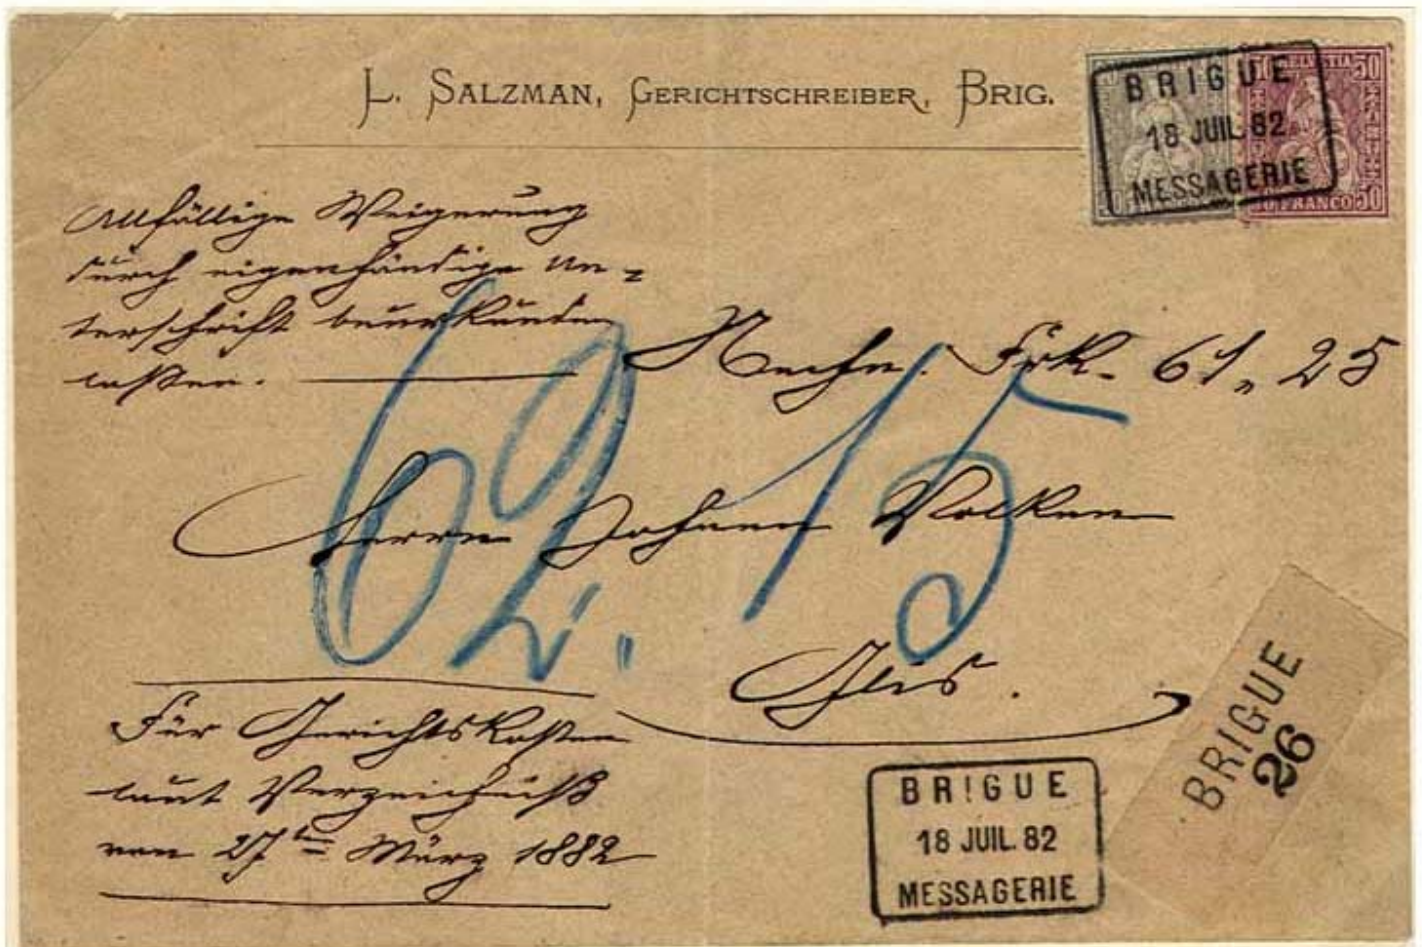 L. SALZMAN, GERICHTSCHREIBER, BRIG.
BRIGUE
18 JUIL. 82
MESSAGERIE
HELVETIA 50
FRANCO 50
Allfällige Weigerung
durch eigenhändige Un=
terschrift beurkunden
lassen.
Nachn. Frk. 61,, 25
62.15
Herrn Johann Volken
Glis.
Für Gerichtskosten
laut Verzeichniß
von 27ten März 1882
BRIGUE
18 JUIL. 82
MESSAGERIE
BRIGUE
26